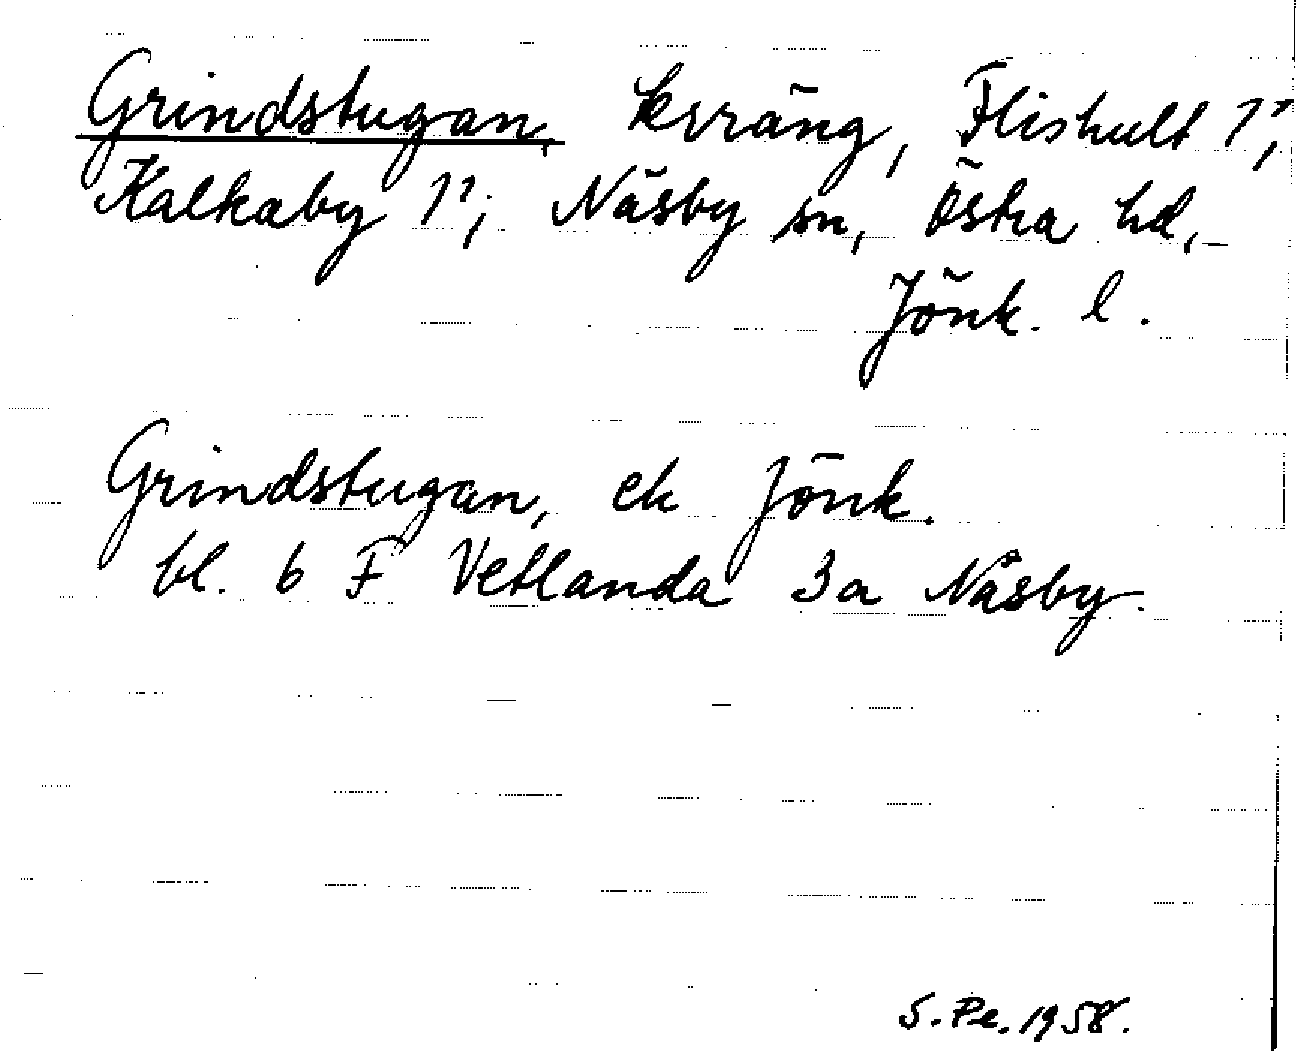 Grindstugan, kvräng, Flishult 1²;
Kalkaby 1²; Näsby sn, Östra hd,
Jönk. l.
Grindstugan, ek Jönk.
bl. 6 F Vetlanda 3a Näsby.
S.Pe. 1958.